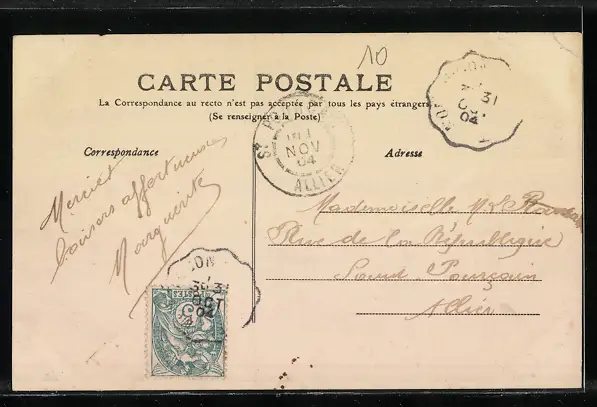 10
CARTE POSTALE
La Correspondance au recto n'est pas acceptée par tous les pays étrangers
(Se renseigner à la Poste)
Correspondance
Adresse
Merci et
baisers affectueuses
Marguerite
Mademoiselle M.
Place de la République
Saint Pourçain
Allier
NOV
04
ALLIER
31
OCT
04
POSTES